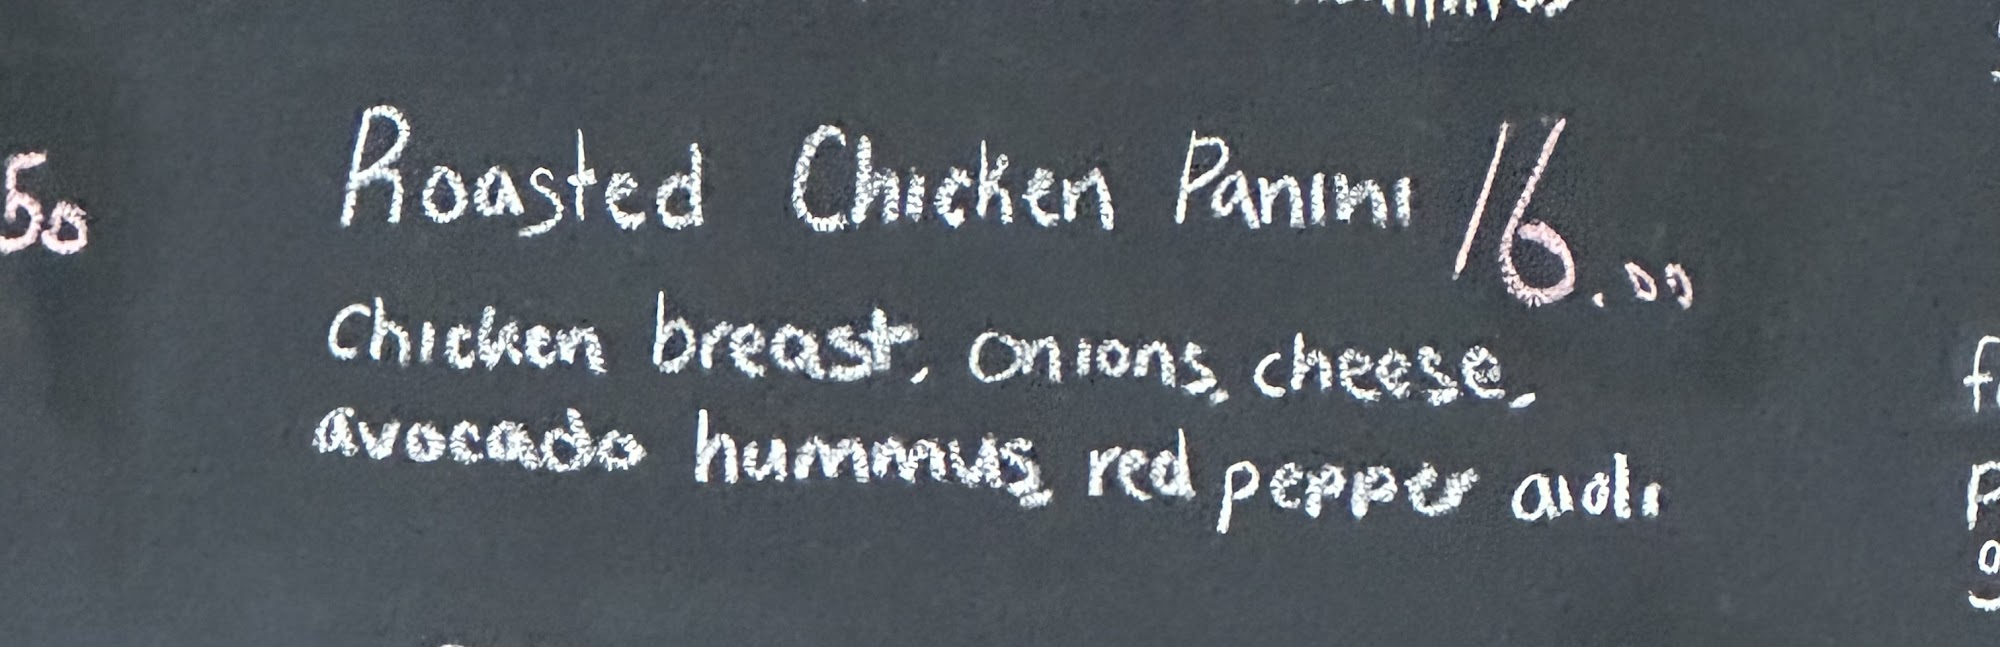 50
Roasted Chicken Panini 16.00
Chicken breast, onions, cheese,
avocado hummus, red pepper aioli